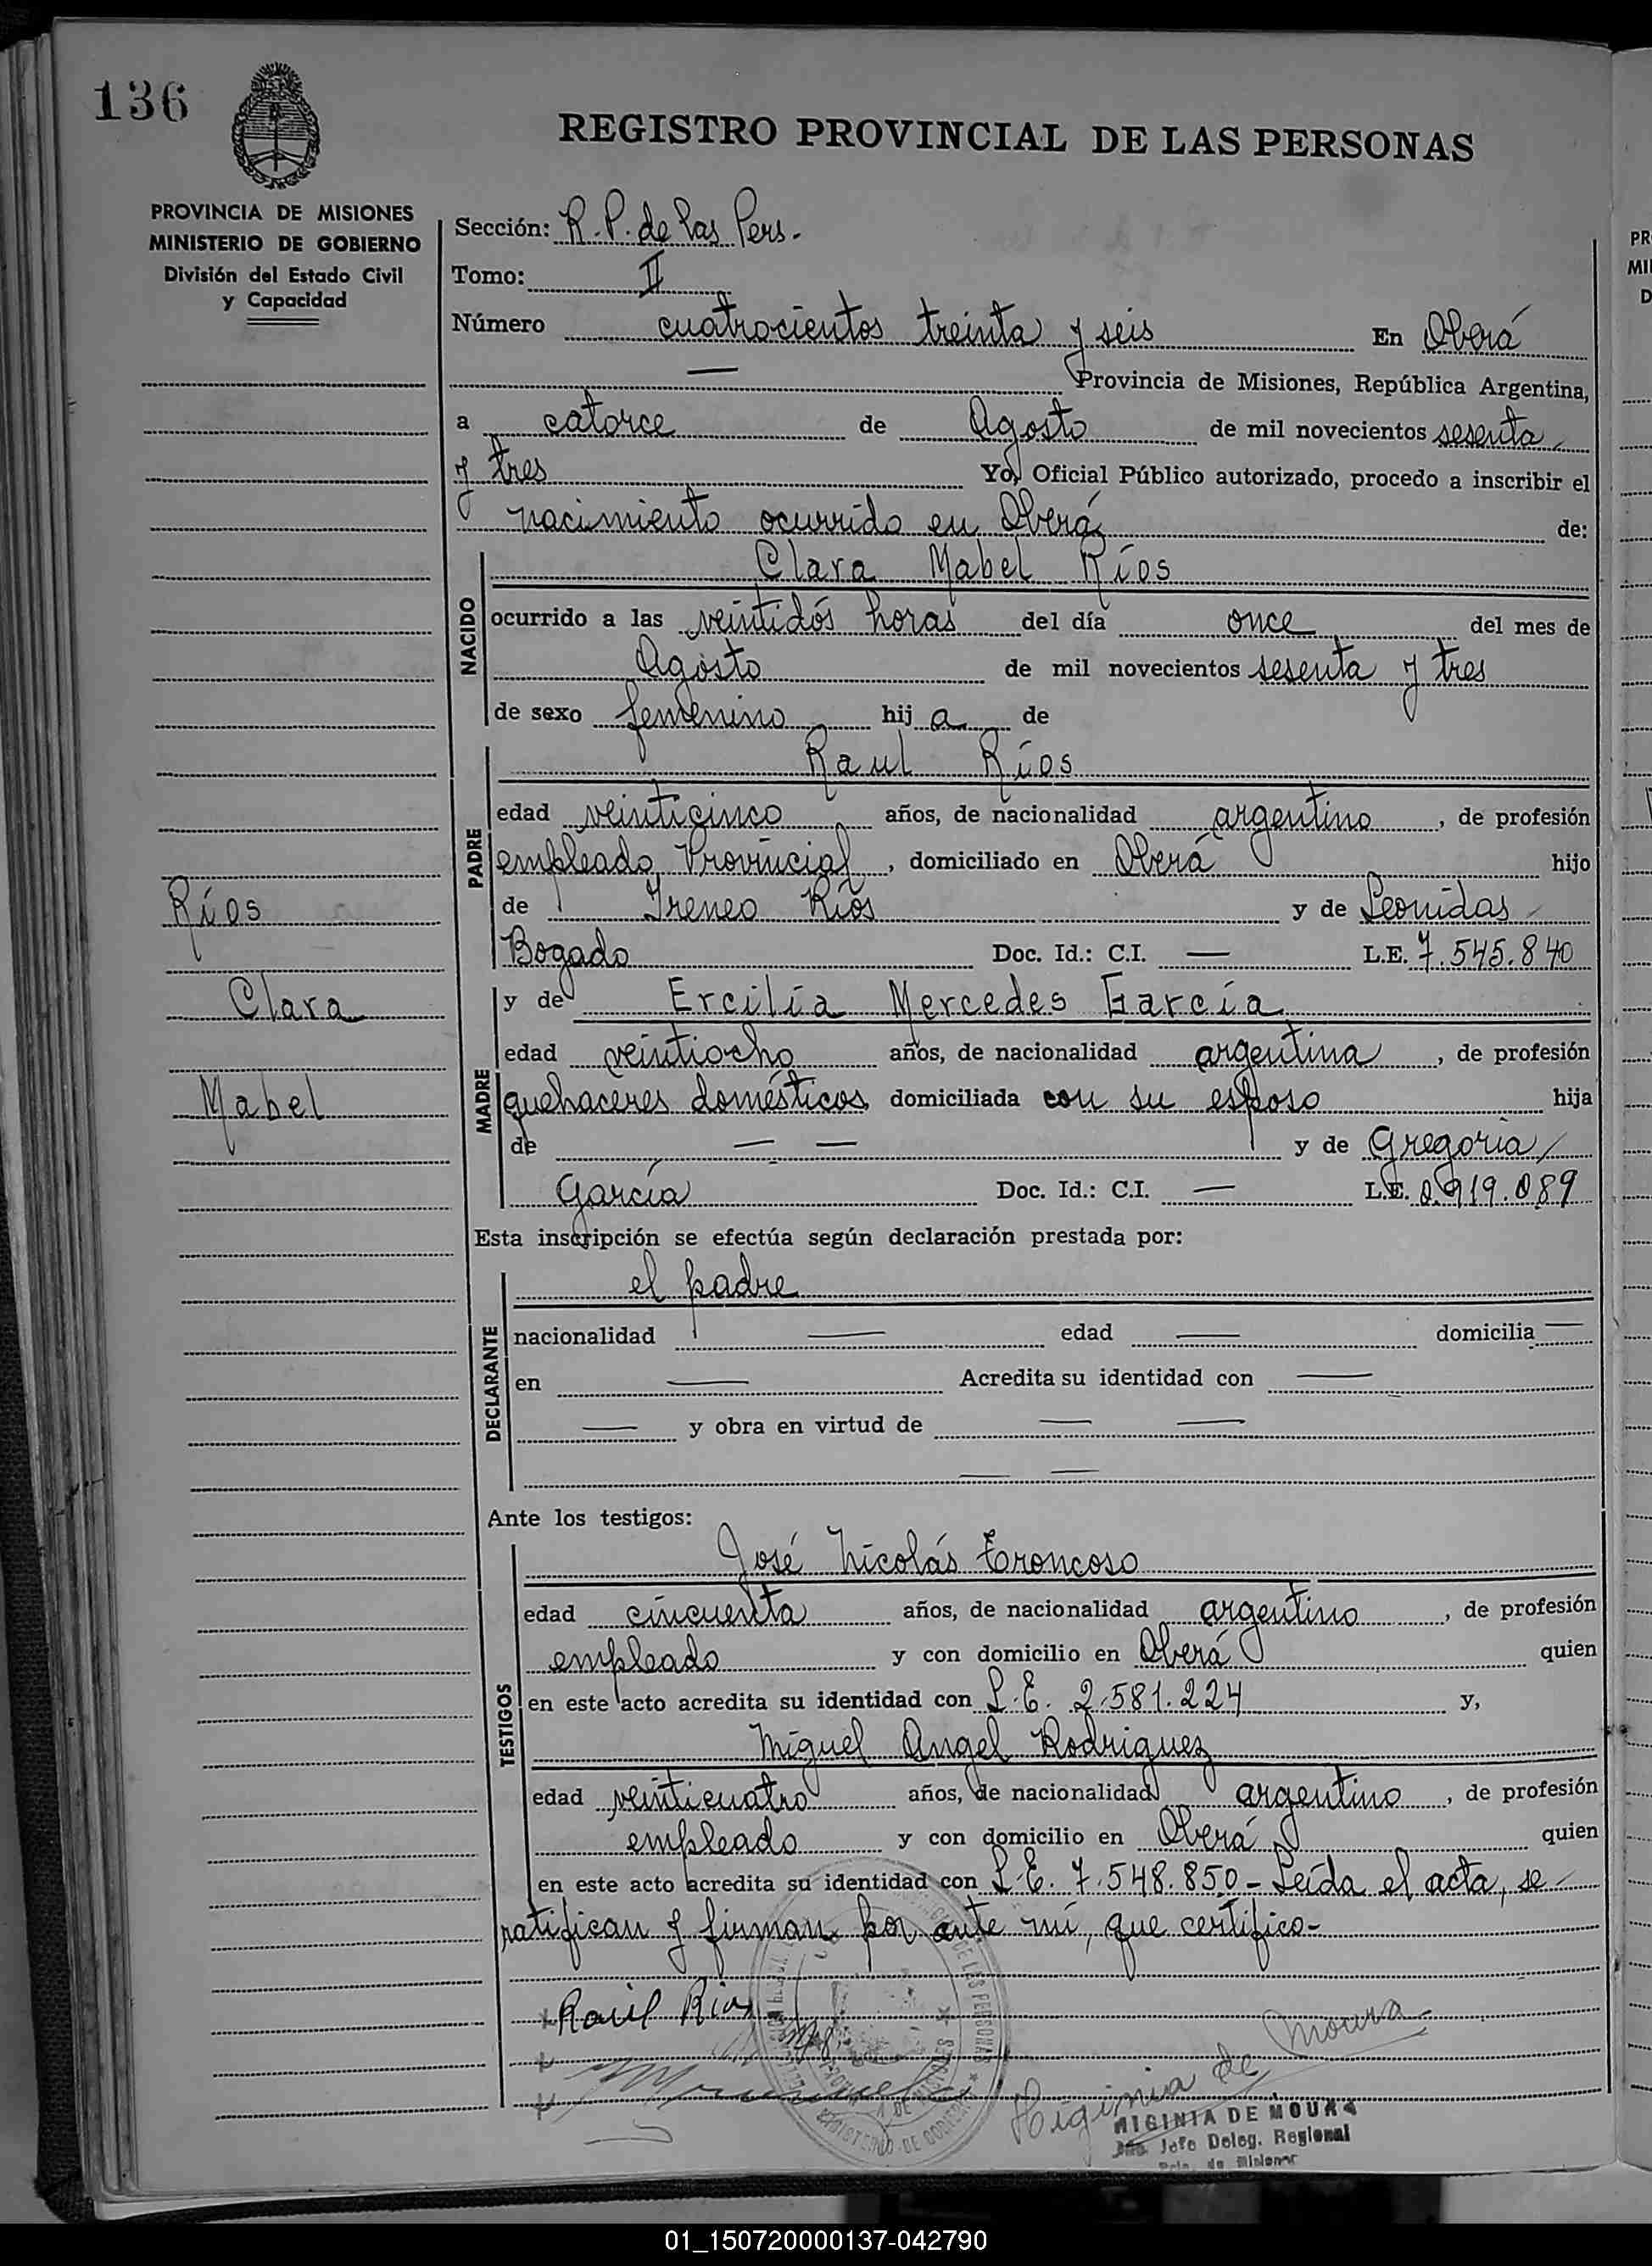 136
REGISTRO PROVINCIAL DE LAS PERSONAS
PROVINCIA DE MISIONES
MINISTERIO DE GOBIERNO
División del Estado Civil
y Capacidad
Sección: R. P. de las Pers.
Tomo: II
Número cuatrocientos treinta y seis En Oberá
— Provincia de Misiones, República Argentina,
a catorce de Agosto de mil novecientos sesenta
y tres Yo, Oficial Público autorizado, procedo a inscribir el
nacimiento ocurrido en Oberá de:
NACIDO
Clara Mabel Ríos
ocurrido a las veintidós horas del día once del mes de
Agosto de mil novecientos sesenta y tres
de sexo femenino hij a de
PADRE
Raul Ríos
edad veinticinco años, de nacionalidad argentino, de profesión
empleado Provincial, domiciliado en Oberá hijo
de Ireneo Ríos y de Leonidas
Bogado Doc. Id.: C.I. — L.E. 7.545.840
Ríos
Clara
Mabel
MADRE
y de Ercilia Mercedes García
edad veintiocho años, de nacionalidad argentina, de profesión
quehaceres domésticos, domiciliada con su esposo hija
de — — y de Gregoria
García Doc. Id.: C.I. — L.E.
Esta inscripción se efectúa según declaración prestada por:
DECLARANTE
el padre
nacionalidad — edad — domicilia —
en — Acredita su identidad con —
— y obra en virtud de — —
— —
Ante los testigos:
TESTIGOS
José Nicolás Troncoso
edad cincuenta años, de nacionalidad argentino, de profesión
empleado y con domicilio en Oberá quien
en este acto acredita su identidad con L.E. 2.581.224 y,
Miguel Angel Rodriguez
edad veinticuatro años, de nacionalidad argentino, de profesión
empleado y con domicilio en Oberá quien
en este acto acredita su identidad con L.E. 7.548.850 - Leída el acta, se
ratifican y firman por ante mí, que certifico-
Raúl Rios
Higinia de Moura
HIGINIA DE MOURA
Jefe Deleg. Regional
01_150720000137-042790